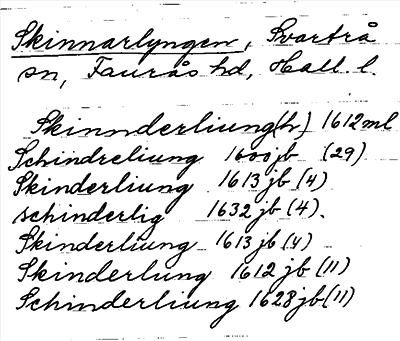 Skinnarlyngen, Svartrå
sn, Faurås hd, Hall. l.
Skinnderliung(h) 1612 ml
Schindreliung 1600 jb (29)
Skinderliung 1613 jb (4)
schinderlig 1632 jb (4).
Skinderliung 1613 jb (4)
Skinderlung 1612 jb (11)
Schinderliung 1628 jb (11)